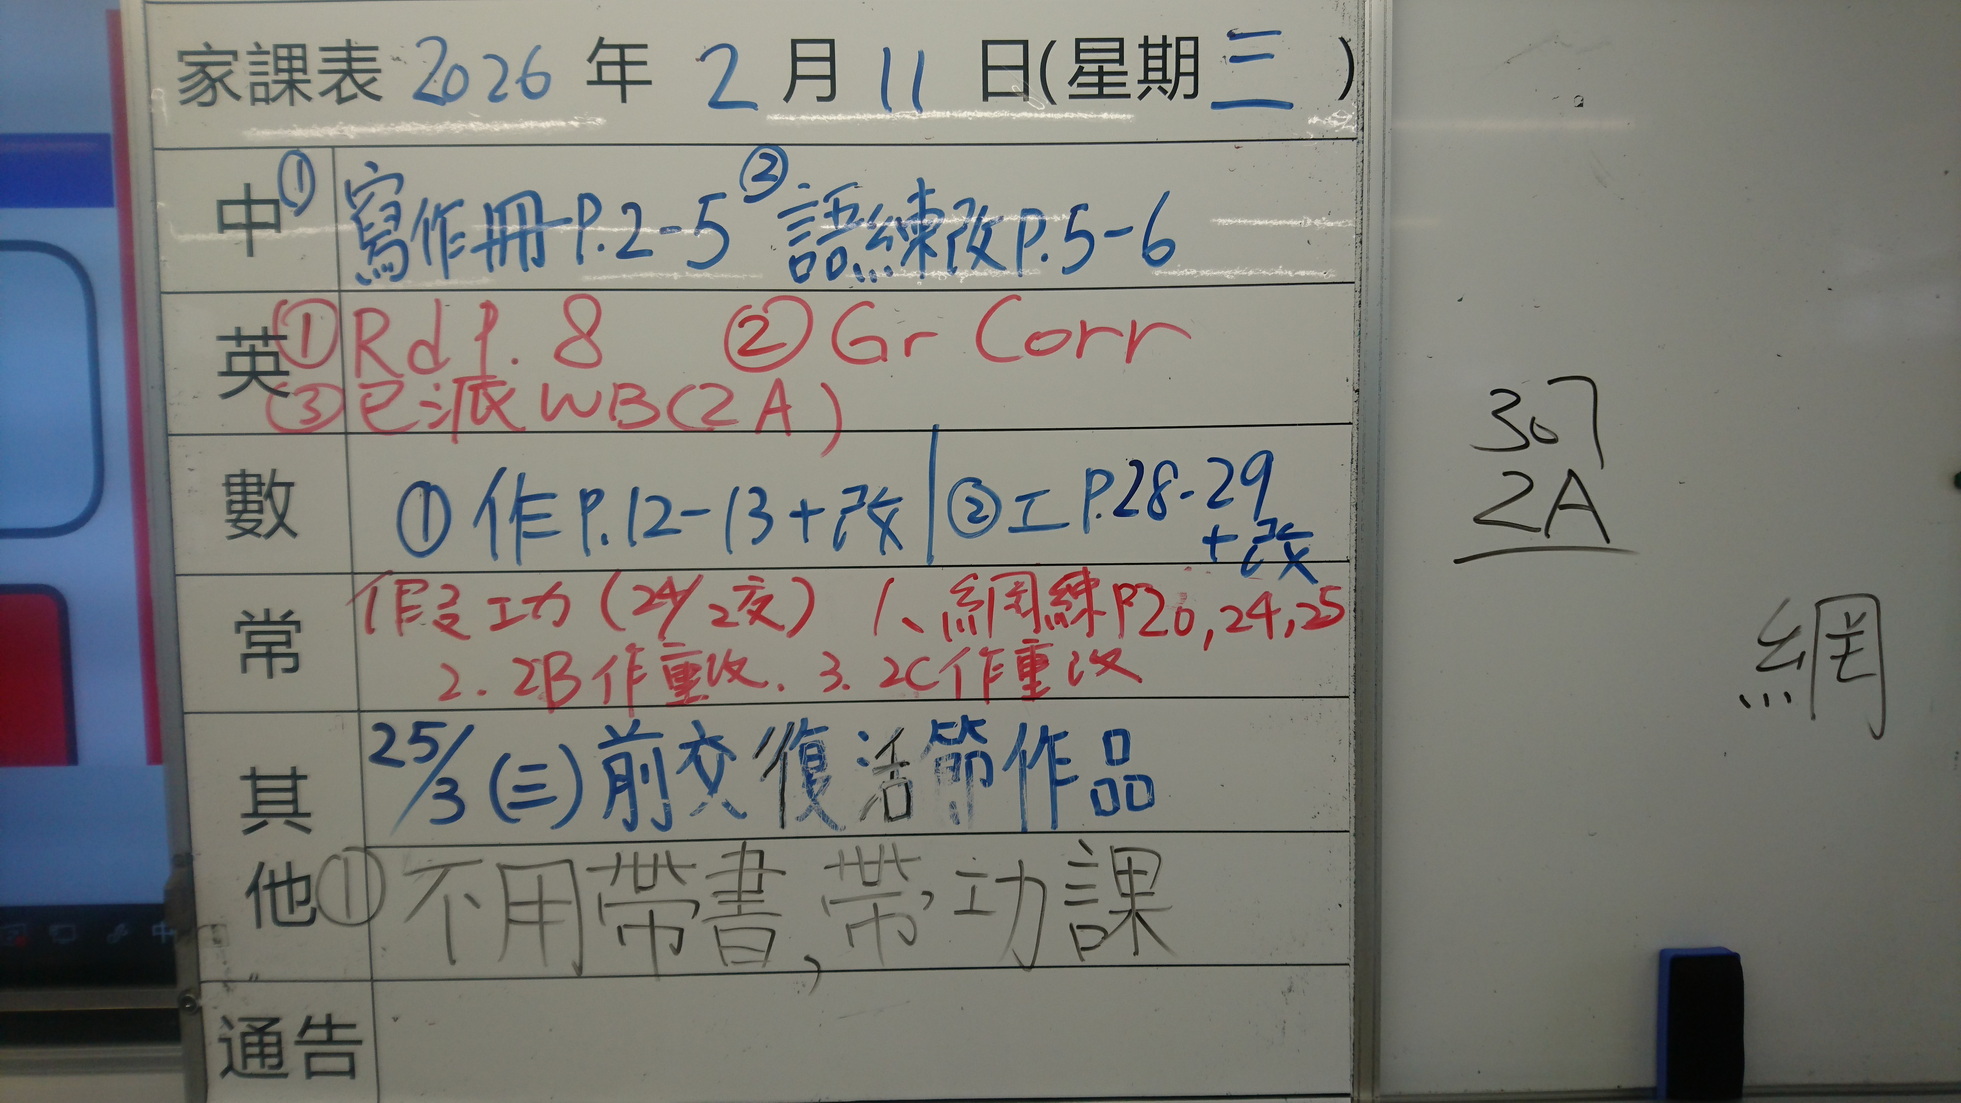 家課表 2026 年 2 月 11 日(星期 三 )
中 ① 寫作冊P.2-5 ② 語練改P.5-6
英 ① Rd P. 8 ② Gr Corr
③ 已派WB(2A)
數 ① 作P.12-13+改 ② 工P.28-29
+改
常 假期功(24/2交) 1、網練P20,24,25
2. 2B作重改. 3. 2C作重改
其他 25/3(三)前交復活節作品
① 不用帶書,帶功課
通告
307
2A
網